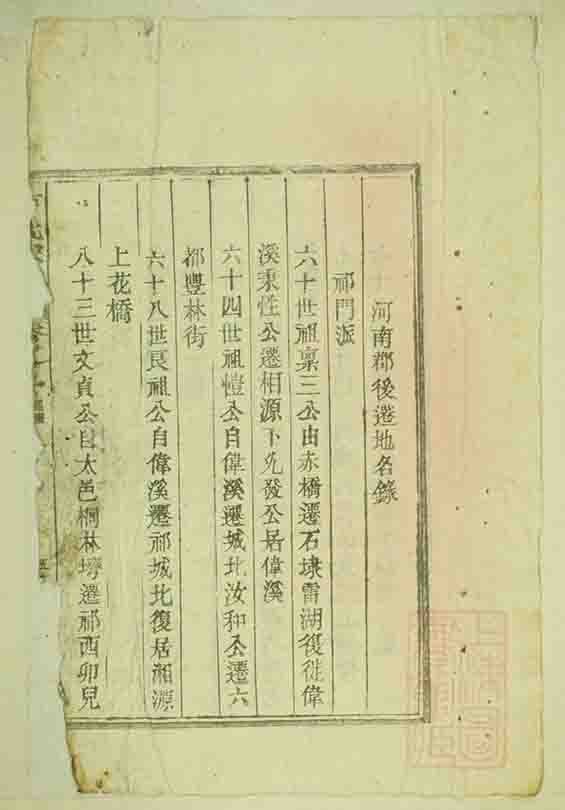 河南郡後遷地名錄
祁門派
六十世祖稟三公由赤橋遷石埭雷湖復徙偉
溪秉性公遷相源下允發公居偉溪
六十四世祖愷公自偉溪遷城北汝和公遷六
都豐林街
六十八世良祖公自偉溪遷祁城北復居湘源
上花橋
八十三世文貞公自太邑桐林塝遷祁西卯兒